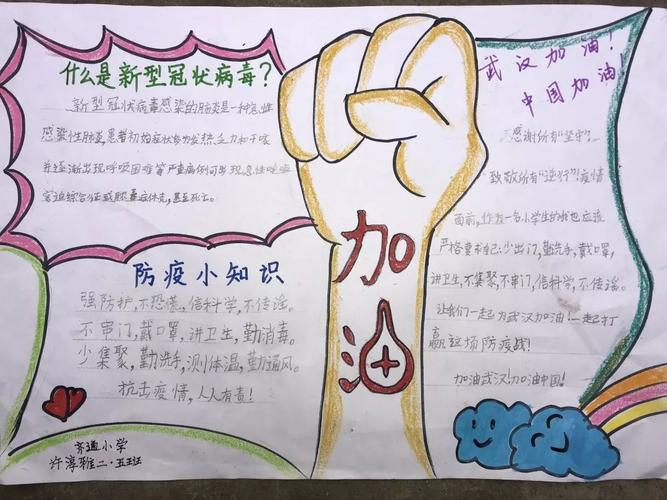 什么是新型冠状病毒？
新型冠状病毒感染的肺炎是一种急性
感染性肺炎,患者初始症状多为发热,乏力和干咳
并逐渐出现呼吸困难等严重病例可出现急性呼吸
窘迫综合征或脓毒症休克,甚至死亡。
防疫小知识
强防护,不恐慌,信科学,不传谣。
不串门,戴口罩,讲卫生,勤消毒。
少集聚,勤洗手,测体温,勤通风。
抗击疫情,人人有责!
齐通小学
许淳雅二·五班
加
油
武汉加油!
中国加油!
感谢所有"坚守",
致敬所有"逆行"!疫情
面前,作为一名小学生的我也应该
严格要求自己:少出门,勤洗手,戴口罩,
讲卫生,不集聚,不串门,信科学,不传谣。
让我们一起为武汉加油!一起打
赢这场防疫战!
加油武汉!加油中国!